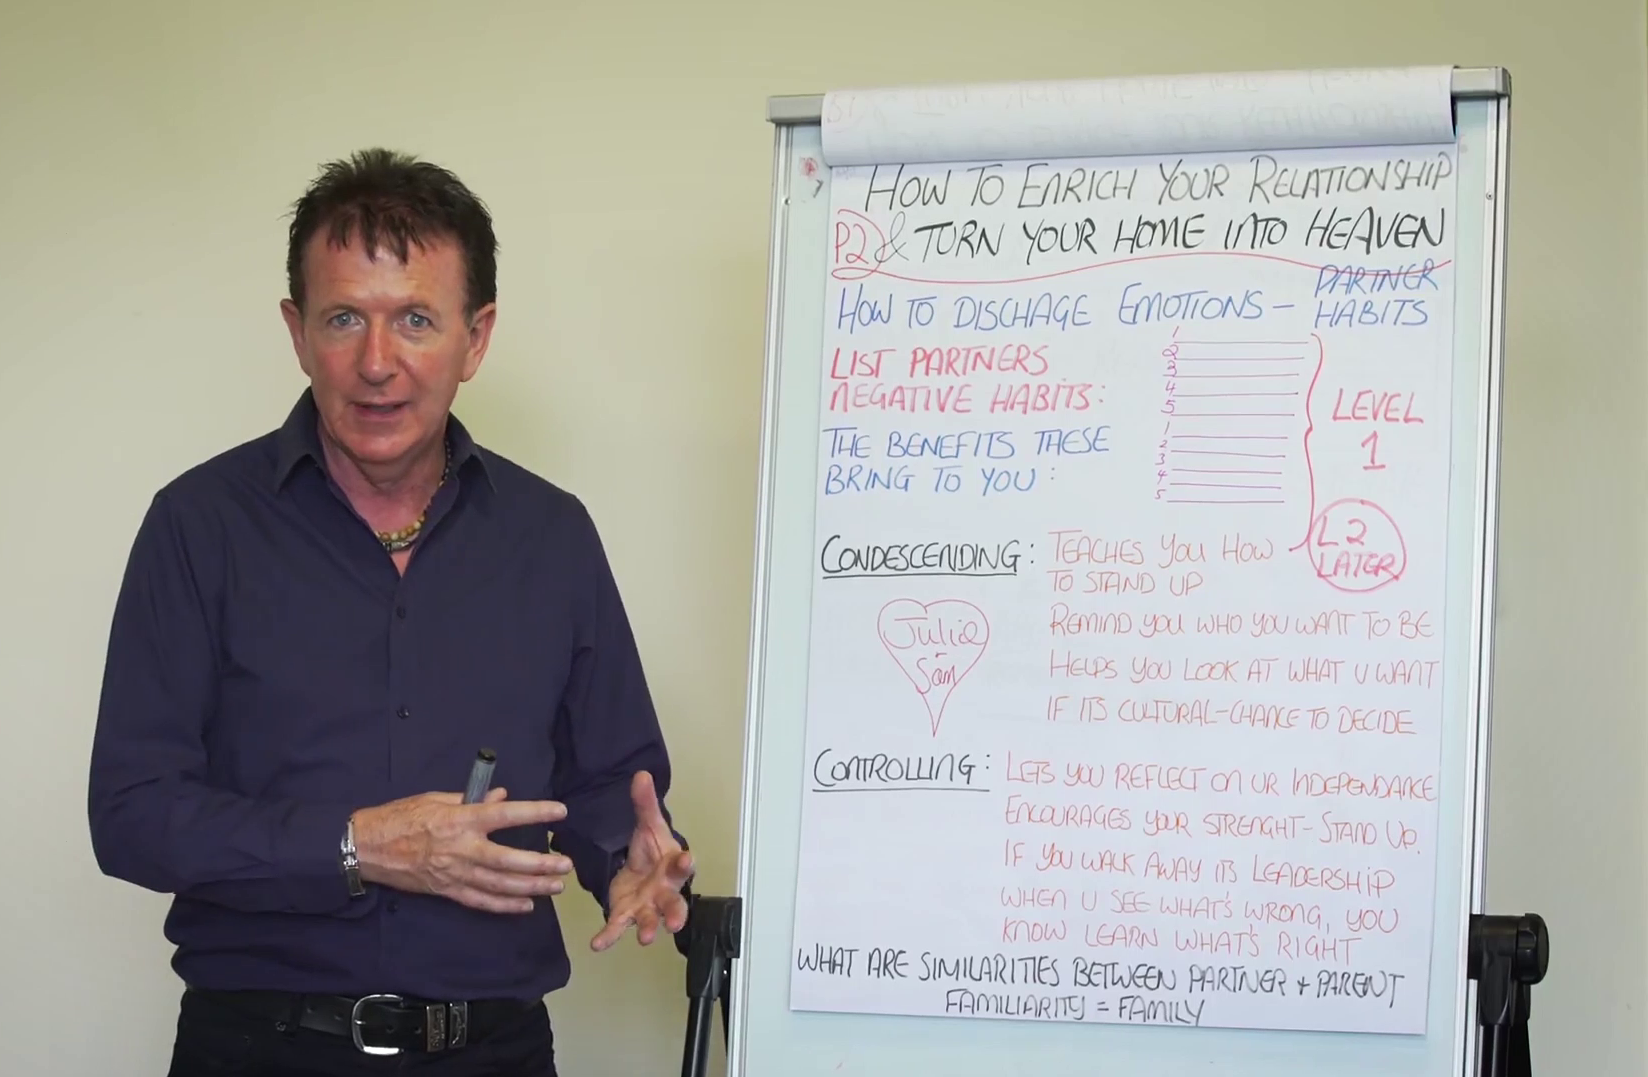 HOW TO ENRICH YOUR RELATIONSHIP
P2 & TURN YOUR HOME INTO HEAVEN
HOW TO DISCHAGE EMOTIONS - PARTNER HABITS
LIST PARTNERS
NEGATIVE HABITS:
1
2
3
4
5
THE BENEFITS THESE
BRING TO YOU:
1
2
3
4
5
LEVEL
1
L2
LATER
CONDESCENDING: TEACHES YOU HOW
TO STAND UP
REMIND YOU WHO YOU WANT TO BE
HELPS YOU LOOK AT WHAT U WANT
IF ITS CULTURAL-CHANCE TO DECIDE
Julie
+
Sam
CONTROLLING: LETS YOU REFLECT ON UR INDEPENDANCE
ENCOURAGES YOUR STRENGHT-STAND UP.
IF YOU WALK AWAY ITS LEADERSHIP
WHEN U SEE WHAT'S WRONG, YOU
KNOW LEARN WHAT'S RIGHT
WHAT ARE SIMILARITIES BETWEEN PARTNER + PARENT
FAMILIARITY = FAMILY